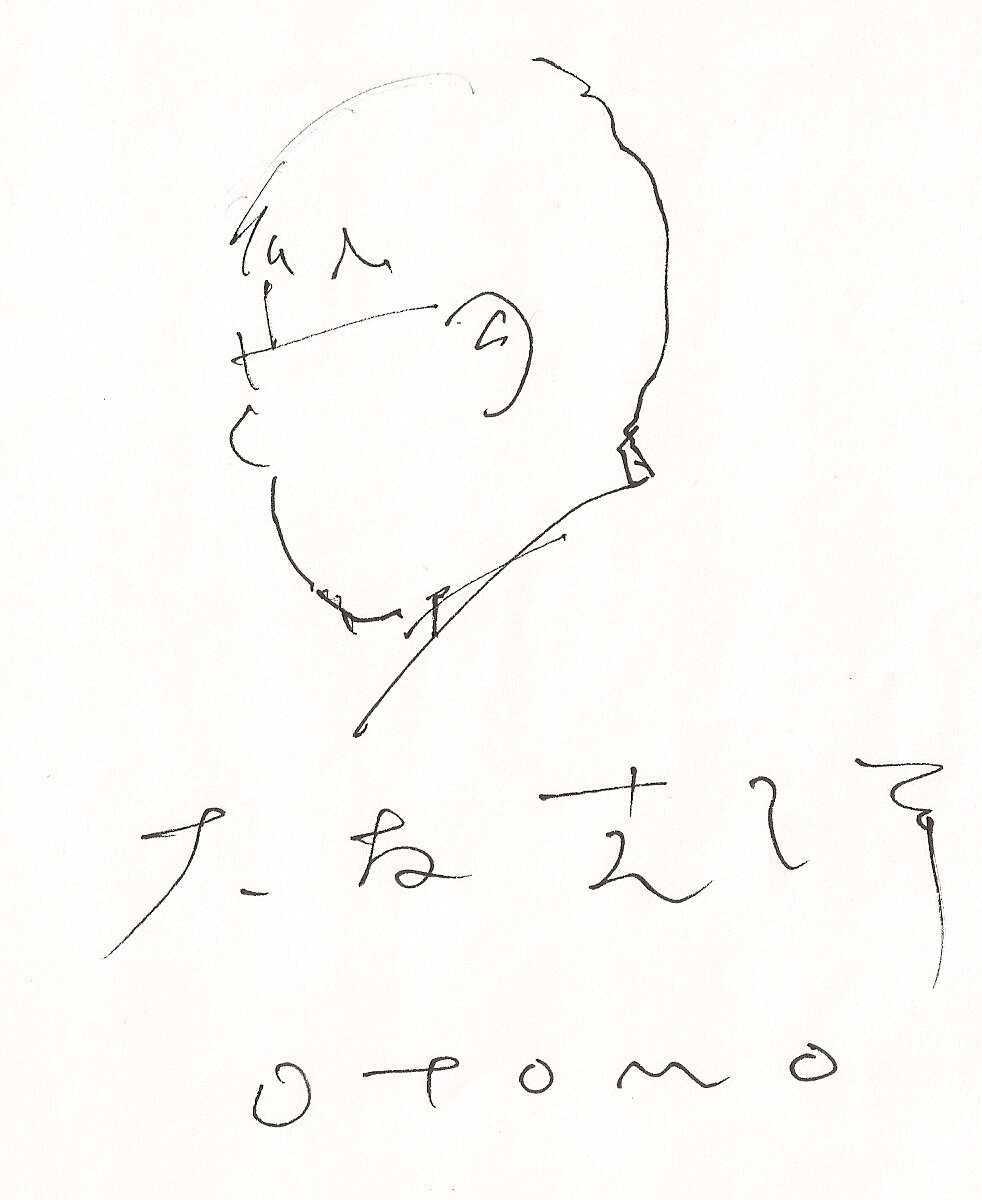 大友克洋
OTOMO